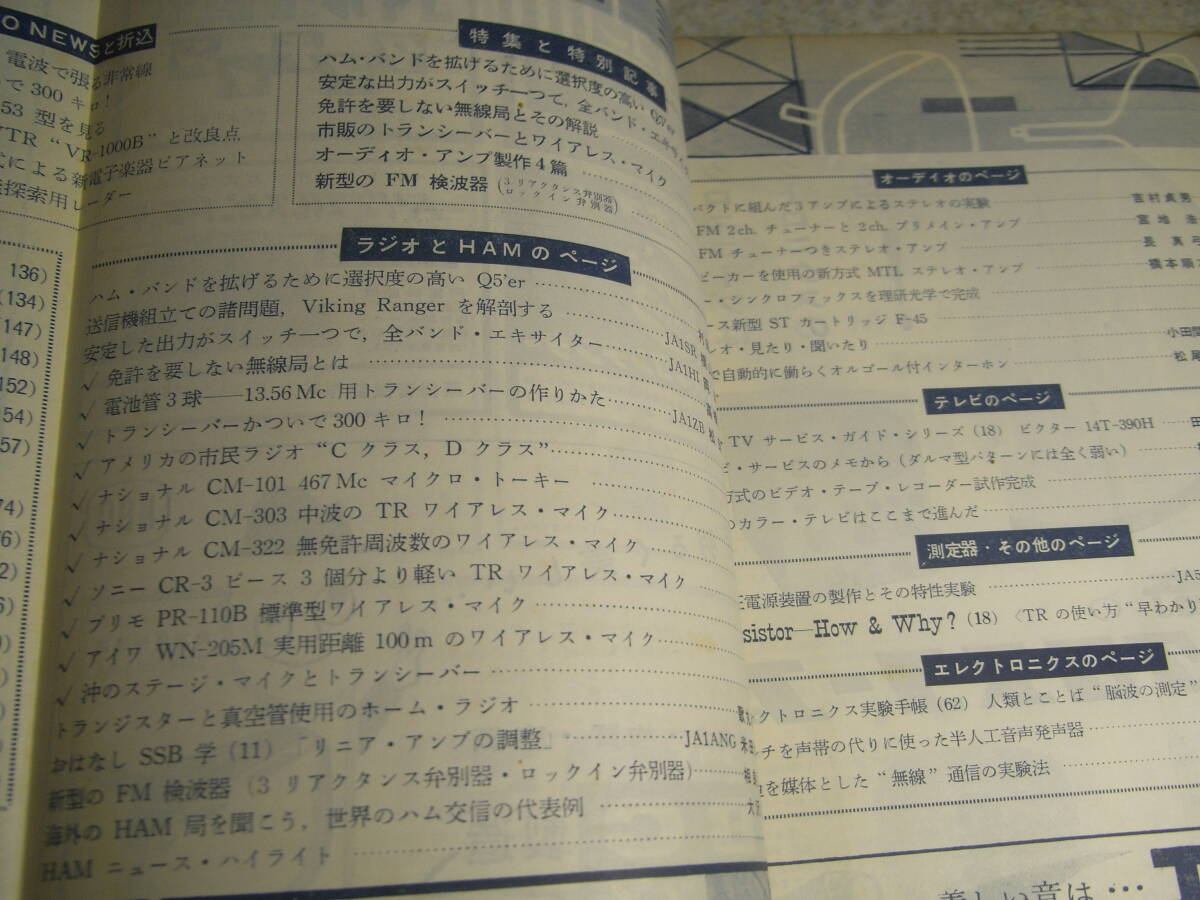 O NEWSと折込
電波で張る非常線
で 300 キロ!
53 型を見る
TR “VR-1000B” と改良点
式による新電子楽器ピアネット
探索用レーダー
136)
(134)
147)
148)
152)
54)
57)
74)
76)
2)
6)
特集と特別記事
ハム・バンドを拡げるために選択度の高い Q5'er
安定な出力がスイッチ一つで,全バンド・エキサイ
免許を要しない無線局とその解説
市販のトランシーバーとワイアレス・マイク
オーディオ・アンプ製作4篇
新型の FM 検波器 (3 リアクタンス弁別器 ロックイン弁別器)
ラジオとHAMのページ
ハム・バンドを拡げるために選択度の高い Q5'er
送信機組立ての諸問題, Viking Ranger を解剖する
安定した出力がスイッチ一つで,全バンド・エキサイター JA1SR
✓ 免許を要しない無線局とは JA1HI
✓ 電池管3球——13.56 Mc 用トランシーバーの作りかた
✓ トランシーバーかついで 300 キロ! JA1ZB
✓ アメリカの市民ラジオ “C クラス, D クラス”
✓ ナショナル CM-101 467 Mc マイクロ・トーキー
✓ ナショナル CM-303 中波の TR ワイアレス・マイク
✓ ナショナル CM-322 無免許周波数のワイアレス・マイク
✓ ソニー CR-3 ピース 3 個分より軽い TR ワイアレス・マイク
✓ プリモ PR-110B 標準型ワイアレス・マイク
✓ アイワ WN-205M 実用距離 100 m のワイアレス・マイク
✓ 沖のステージ・マイクとトランシーバー
トランジスターと真空管使用のホーム・ラジオ
おはなし SSB 学 (11) 「リニア・アンプの調整」 JA1ANG 米
新型の FM 検波器 (3 リアクタンス弁別器・ロックイン弁別器)
海外の HAM 局を聞こう,世界のハム交信の代表例
HAM ニュース・ハイライト
オーディオのページ
パクトに組んだ3アンプによるステレオの実験 吉村貞男
FM 2ch. チューナーと 2ch. プリメイン・アンプ 宮地
FM チューナーつきステレオ・アンプ 長 真
ピーカーを使用の新方式 MTL ステレオ・アンプ 橋本
ー・シンクロファックスを理研光学で完成
ース新型 ST カートリッジ F-45
レオ・見たり・聞いたり 小田
で自動的に働らくオルゴール付インターホン 松尾
テレビのページ
TV サービス・ガイド・シリーズ (18) ビクター 14T-390H
ビ・サービスのメモから (ダルマ型パターンには全く弱い)
方式のビデオ・テープ・レコーダー試作完成
のカラー・テレビはここまで進んだ
測定器・その他のページ
圧電源装置の製作とその特性実験 JA5
sistor—How & Why? (18) 〈TR の使い方“早わかり
エレクトロニクスのページ
クトロニクス実験手帳 (62) 人類とことば“脳波の測定”
チを声帯の代りに使った半人工音声発声器
を媒体とした “無線” 通信の実験法
美しい音は…